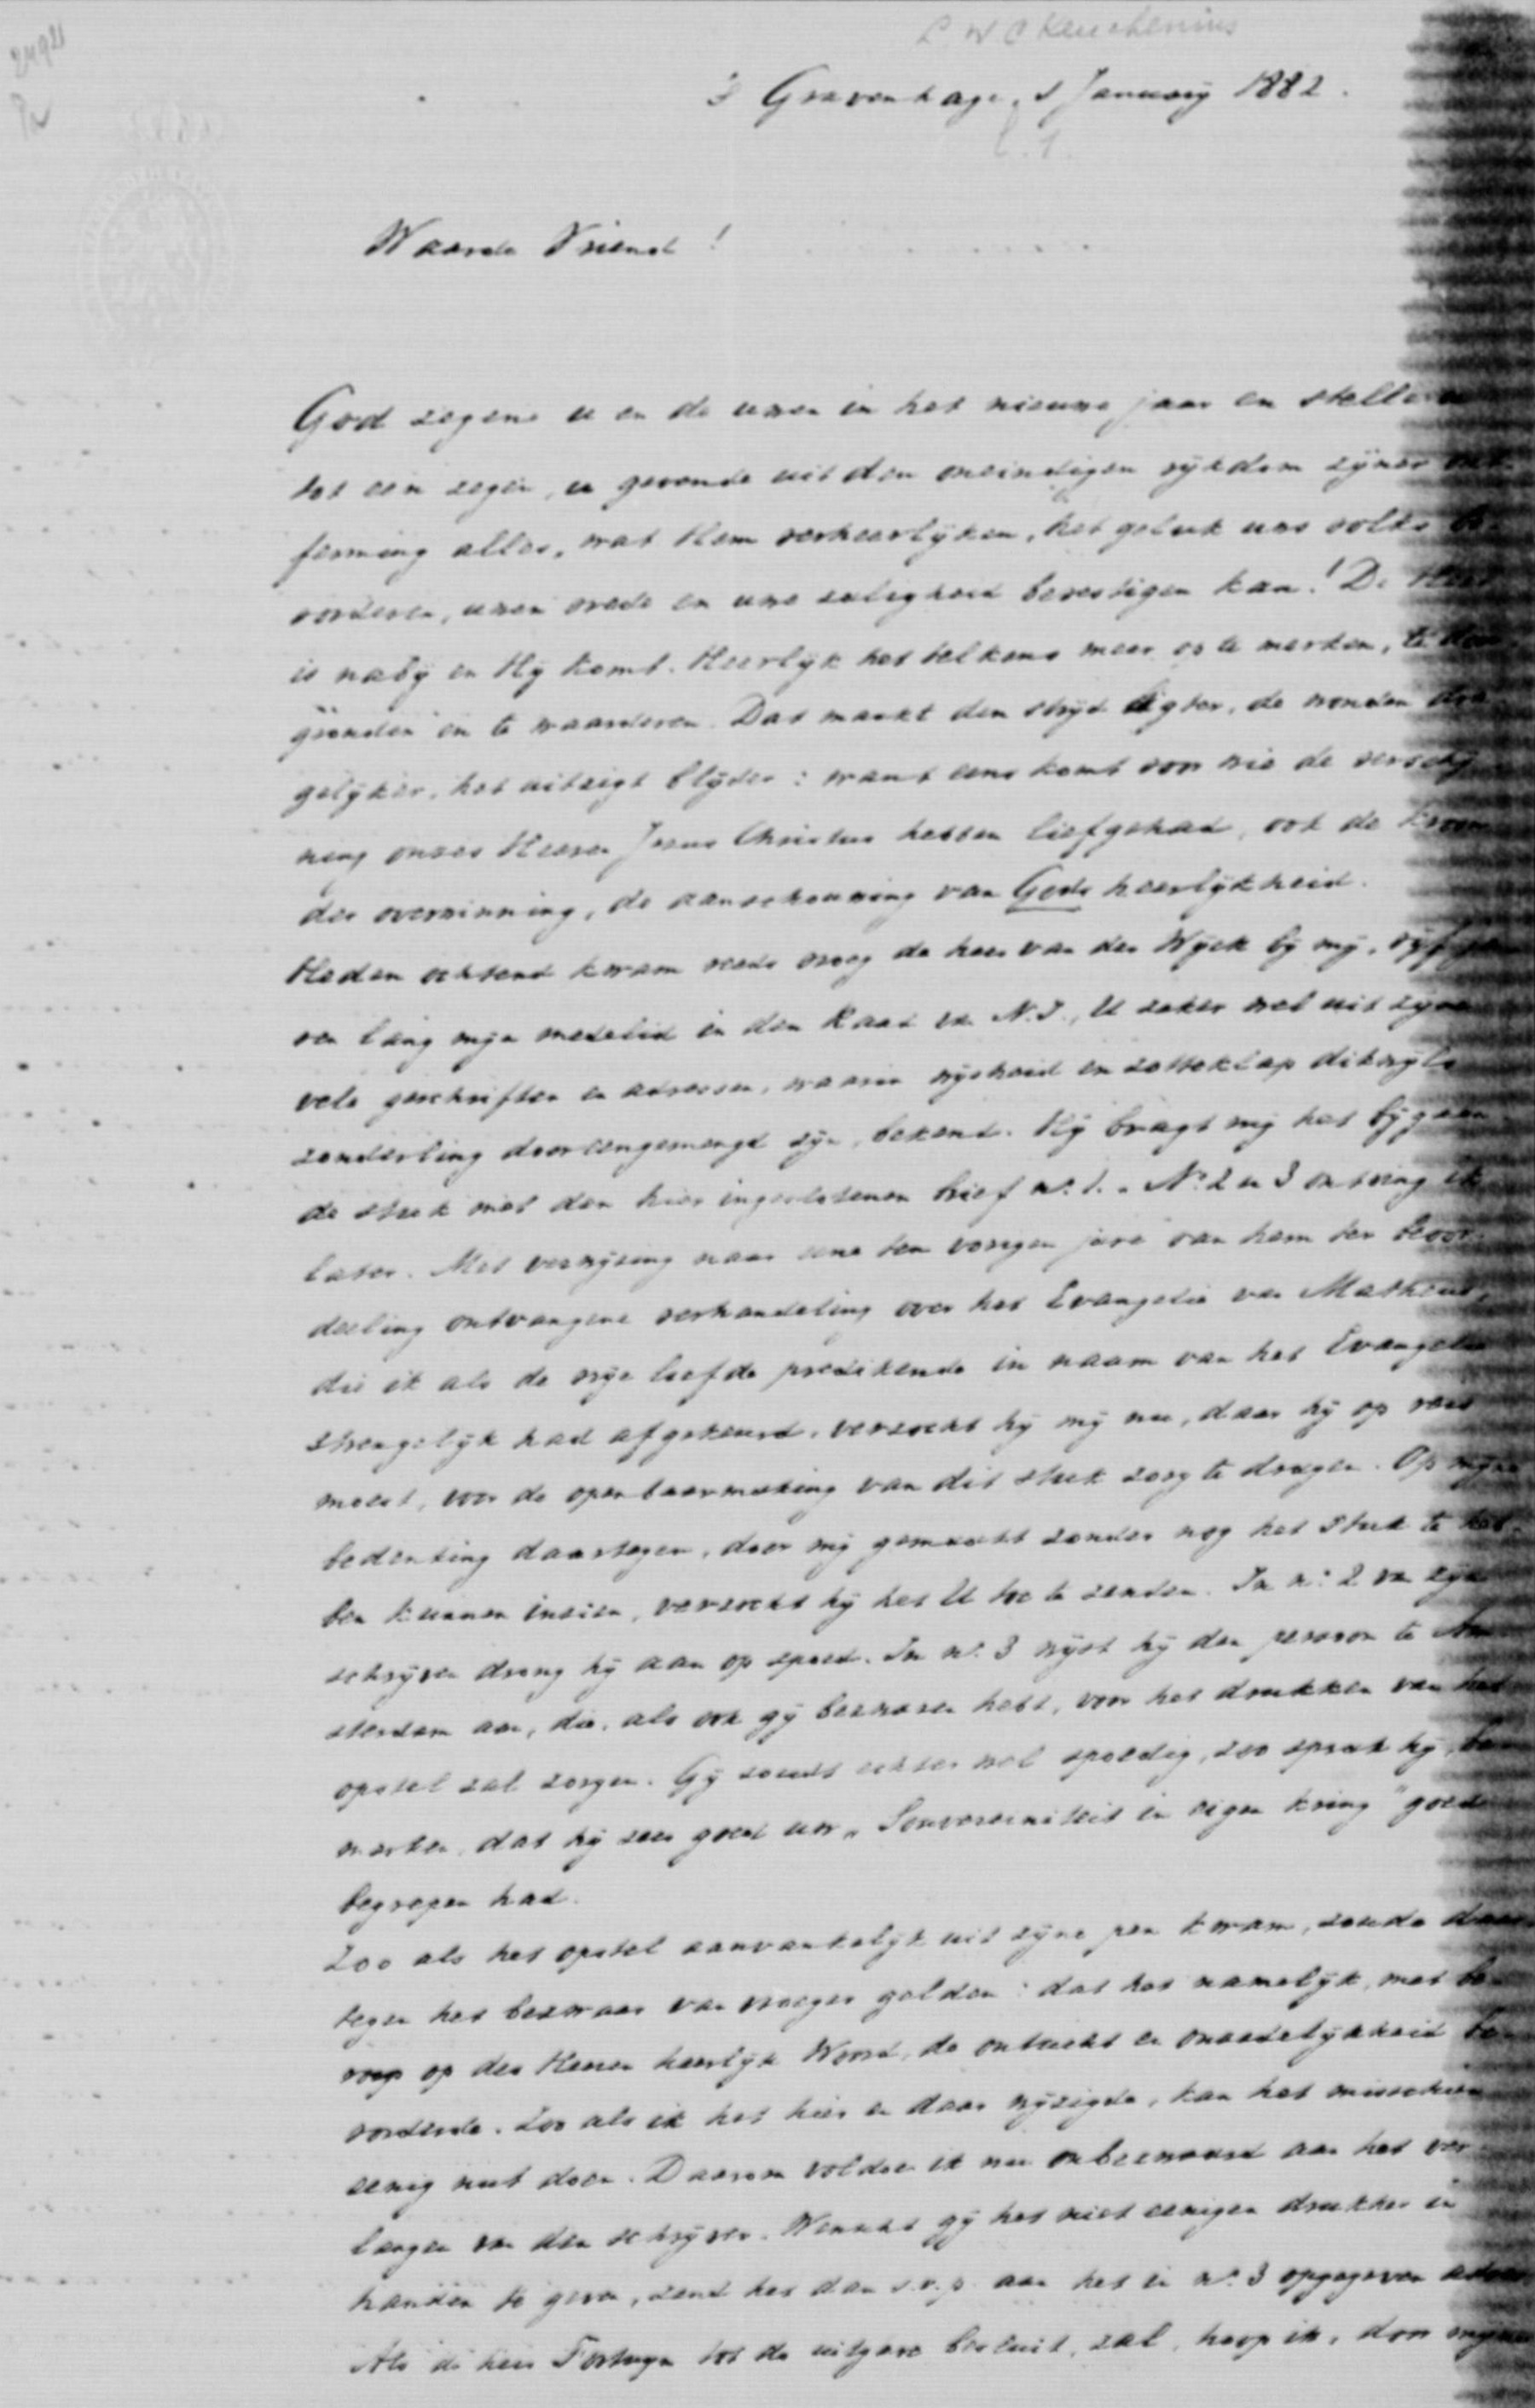 2492
L W C Keuchenius
's Gravenhage, 1 January 1882.
l. 1.
Waarde Vriend!
God zegene u en de uwen in het nieuwe jaar en stelle u
tot een zegen, u gevende uit den oneindigen rykdom zyner ont-
ferming alles, wat Hem verheerlyken, het geluk uws volks be-
vorderen, uwen vrede en uwe zaligheid bevestigen kan! De Heer
is naby en Hy komt. Heerlyk het telkens meer op te merken, te
en te waarderen. Dat maakt den stryd ligter, de wonden dra-
gelyker, het uitzigt blyder: want eens komt voor wie de verschy-
ning onzes Heeren Jesus Christus hebben liefgehad, ook de kroon
der overwinning, de aanschouwing van Gods heerlykheid.
Heden ochtend kwam reeds vroeg de heer van der Wyck by my, vyf ja-
ren lang myn medelid in den Raad v. N.I., U zeker wel uit zyne
vele geschriften en adressen, waarin wysheid en zotteklap dikwyls
zonderling dooreengemengd zyn, bekend. Hy bragt my het bygaan-
de stuk met den hier ingeslotenen brief no. 1. No 2 en 3 ontving ik
later. Met verwyzing naar eene ten vorigen jare van hem ter beoor-
deeling ontvangene verhandeling over het Evangelie van Matheus,
die ik als de vrye liefde predikende in naam van het Evangelie
strengelyk had afgekeurd, verzocht hy my nu, daar hy op reis
moest, voor de openbaarmaking van dit stuk zorg te dragen. Op myne
bedenking daartegen, door my gemaakt zonder nog het stuk te heb-
ben kunnen inzien, verzocht hy het U toe te zenden. In no. 2 van zyn
schryven drong hy aan op spoed. In no. 3 wyst hy den persoon te Am-
sterdam aan, die, als ook gy bezwaren hebt, voor het drukken van het
opstel zal zorgen. Gy zoudt echter wel spoedig, zoo sprak hy, be-
merken, dat hy zeer goed uw „Souvereiniteit in eigen kring" goed
begrepen had.
Zoo als het opstel aanvankelyk uit zyne pen kwam, zoude daar-
tegen het bezwaar van vroeger gelden: dat het namelyk, met be-
roep op des Heeren heerlyk Woord, de ontucht en onzedelykheid be-
vorderde. Zoo als ik het hier en daar wyzigde, kan het misschien
eenig nut doen. Daarom voldoe ik nu onbezwaard aan het ver-
langen van den schryver. Wenscht gy het niet eenigen drukker in
handen te geven, zend het dan s.v.p. aan het in no. 3 opgegeven adres.
Als de heer tot de uitgave besluit, zal, hoop ik, door myne